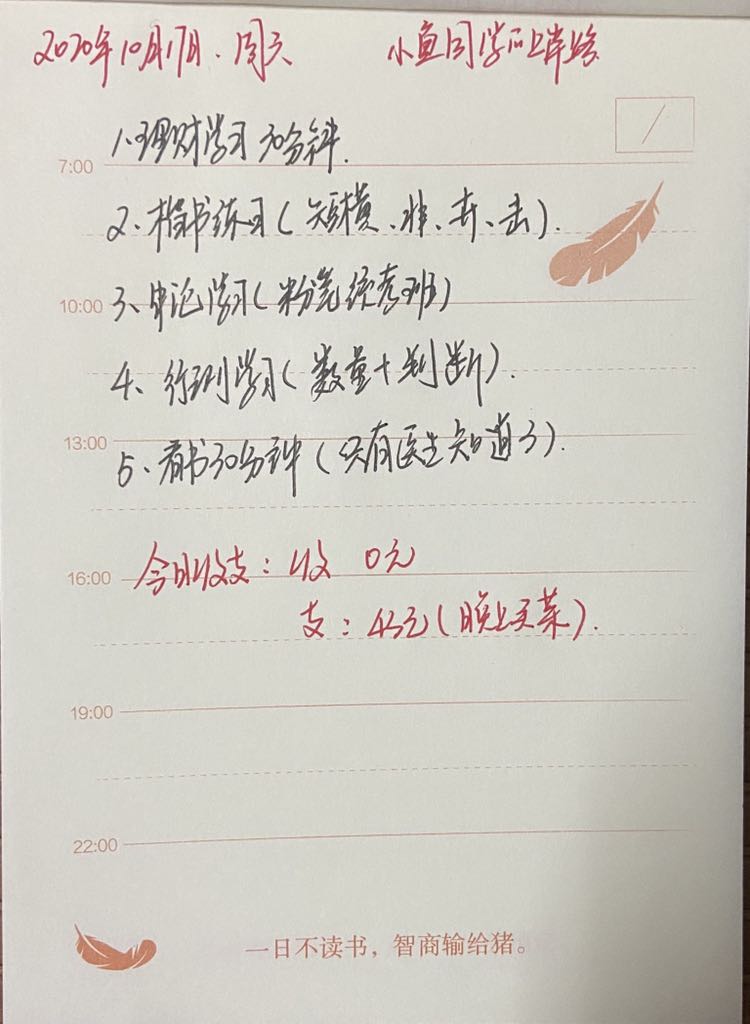 2020年10月17日.周六 小鱼同学的上岸路
/
1、理财学习30分钟.
7:00
2、楷书练习(短横、非、卉、击).
10:00
3、申论学习(粉笔续考班)
4、行测学习(数量+判断).
13:00
5、看书30分钟(只有医生知道3).
今日收支:收 0元
16:00
支:43元(晚上买菜).
19:00
22:00
一日不读书,智商输给猪。